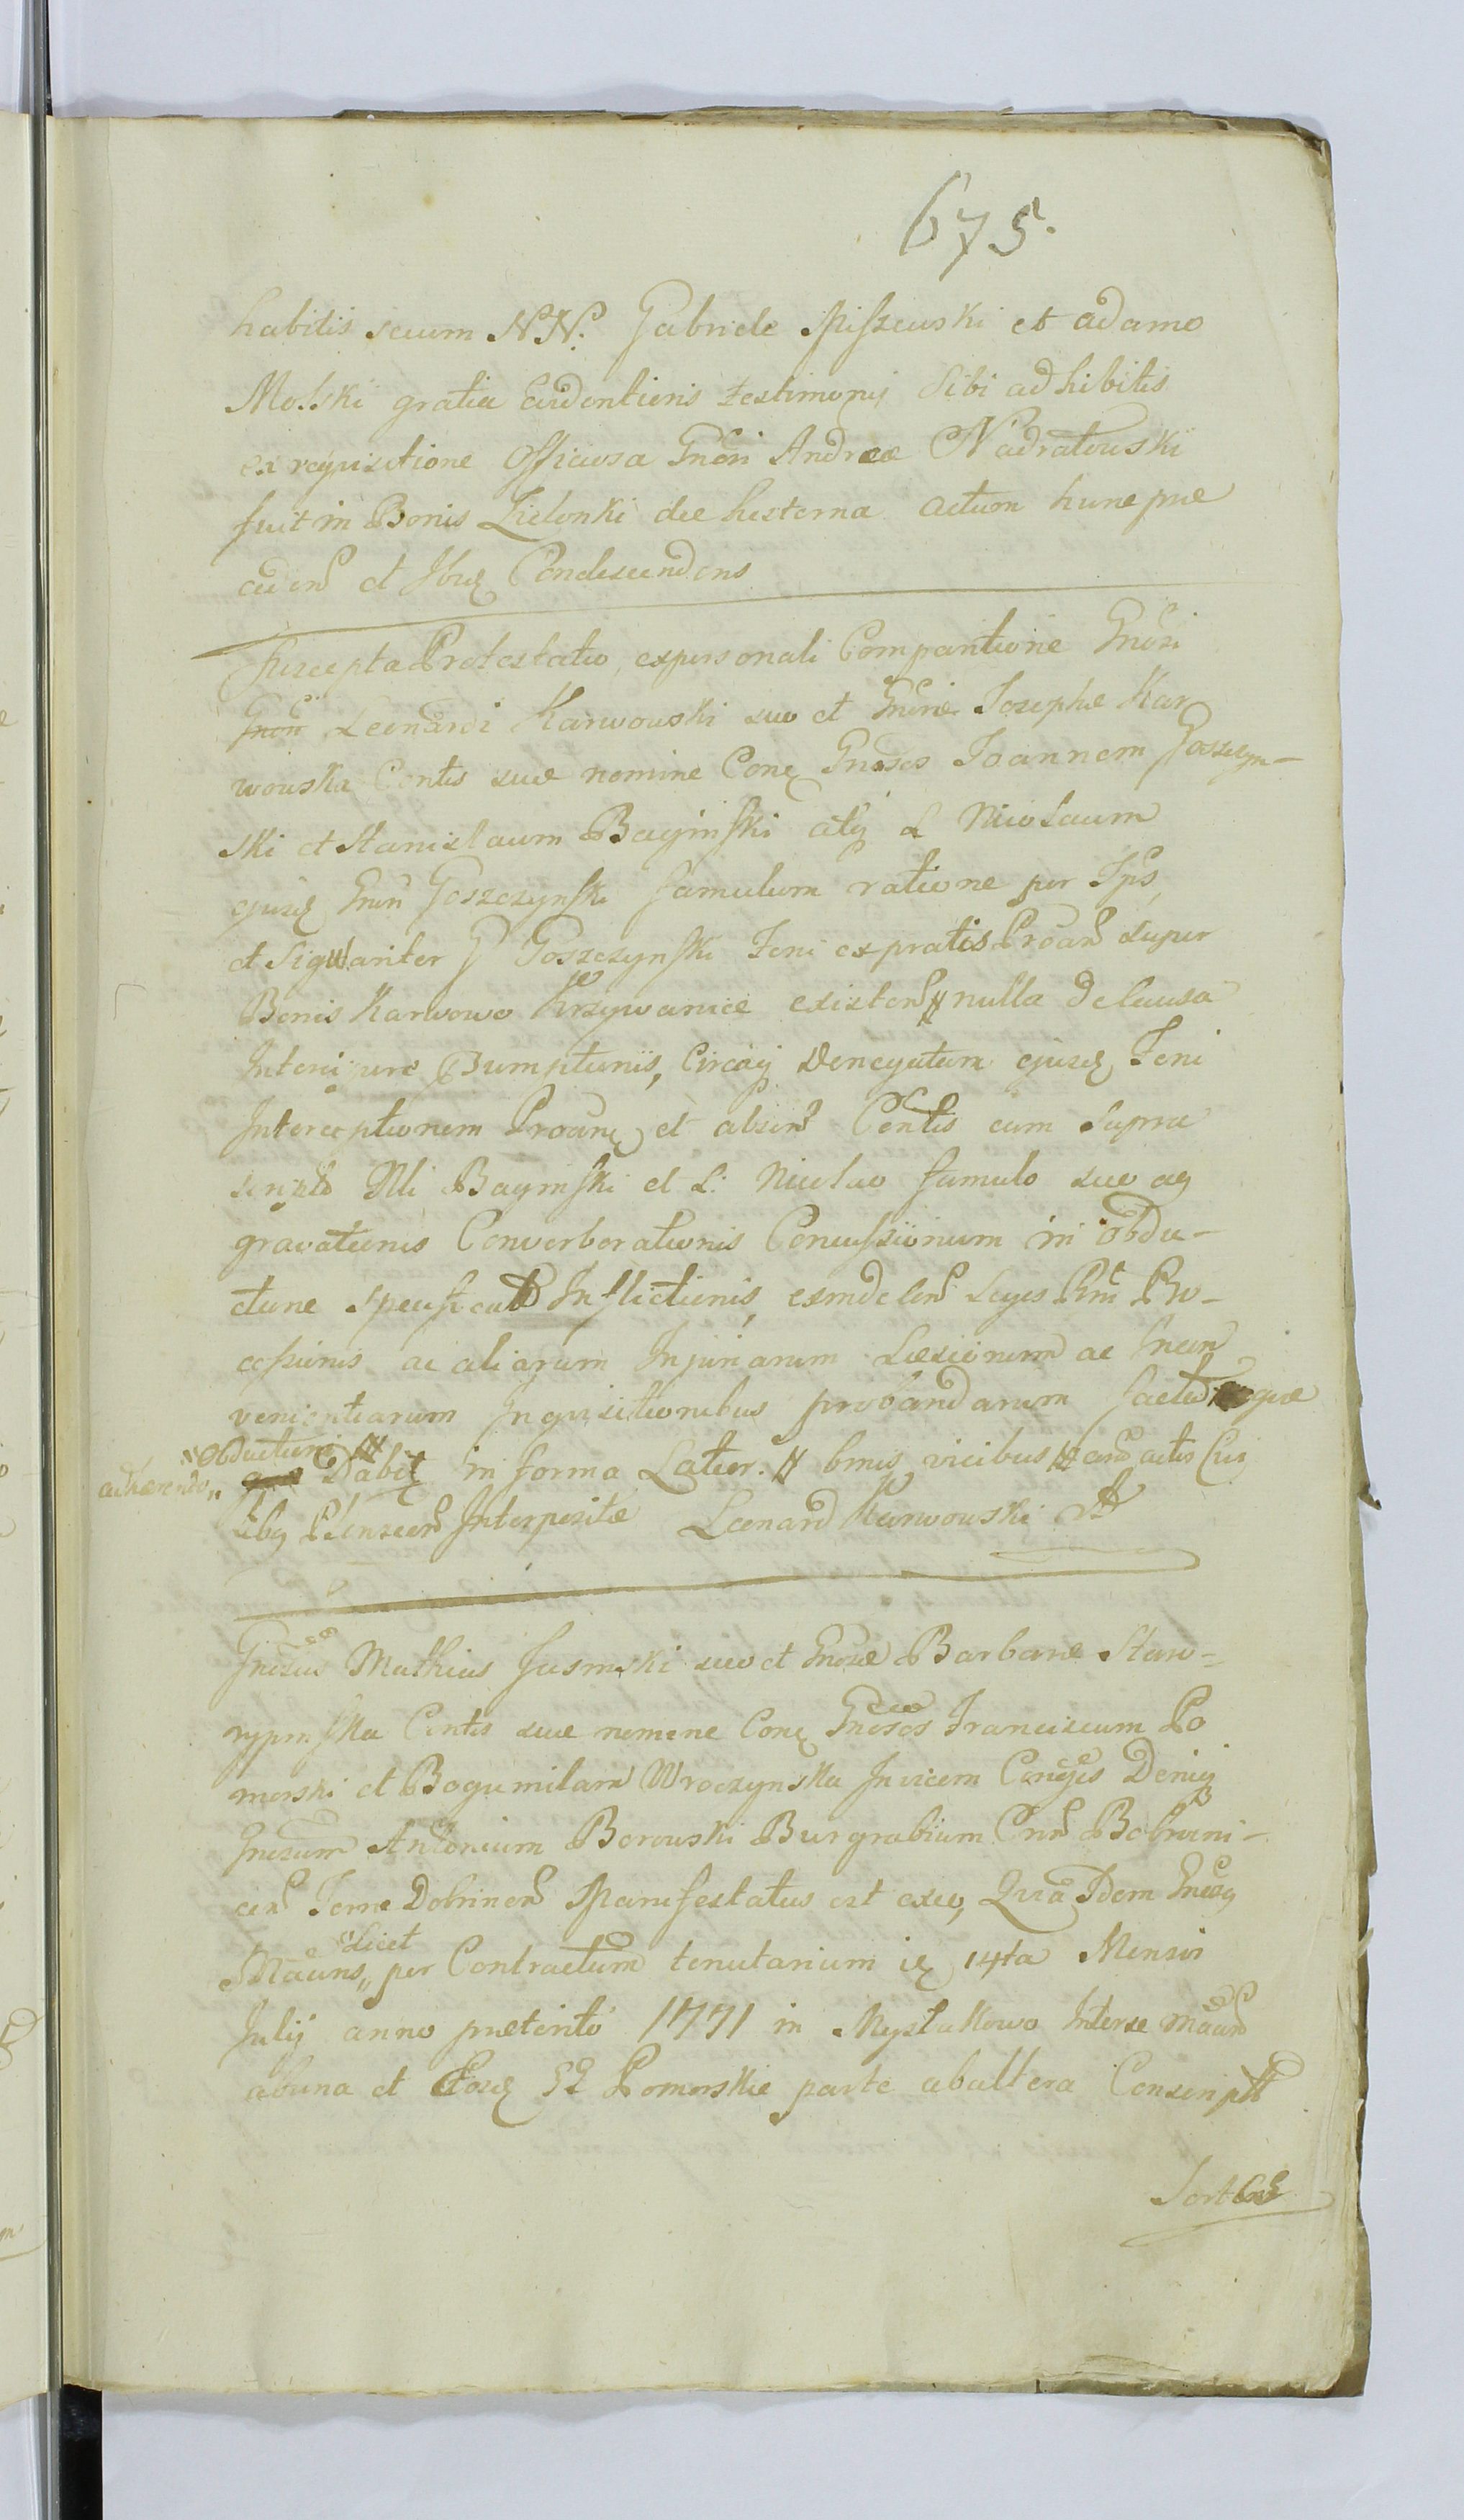 675.
habitis secum NN. Gabriele Pissewski et Adamo
Molski gratia Evidentioris testimonij Sibi adhibitis
ex requisitione Officiosa Gnōri Andreæ Nadratowski
fuit in Bonis Zielonki die hesterna actum hunc præ
ceden et Condescendens
Suscepta Protestatio, ex personali Comparitione Gnōri
Leonardi Karwowski suo et Gnōræ Josephæ Kar
wowska Contis suæ nomine Conq Gnosos Joannem Goszczyn-
ski et Stanislaum Baginski atq L Nicolaum
ejusq Gnōri Goszczynski famulum ratione per Ips
et Sigulariter G Goszczynski Feni ex pratis Proan super
Bonis Karwowo Krzywanice existen nulla de Causa
Intercipere Sumptionis, Circaq Denegatam ejusq Feni
Interceptionem Proanq et absen Contis cum Supra
scripto Nli Baginski et L. Nicolao famulo suo ag
gravationis Converberationis Concussionum in obdu-
ctione specificat Inflictionis, exinde Leges Prni Pro-
cessionis ac aliarum Injuriarum Læsionum ac Incon
venientiarum Inquisitionibus probandarum factæ quæ
"Obductioni
adhærendo,, Dabit in forma Latior. bmis vicibus and actis Crij
Interpositæ Leonard Karwowski
Gnosus Mathias Jasinski suo et Gnosæ Barbaræ Staw-
rypinska Contis suæ nomine Conq Gnosos Franciscum Po
morski et Bogumilam Wroczynska Invicem Congēs Deniq
Gnosum Antonium Borowski Burgrabium Crn Bobrowni-
cen Terræ Dobrinen Manifestatus est exeo, Quia Idem Gnosq
"Licet
Mānns,, per Contractum tenutarium iq 14ta Mensis
Julij anno præterito 1771 in Myslakowo Interse mānn
abuna et Eosq GG Pomorskie parte ab altera Conscript
Sort